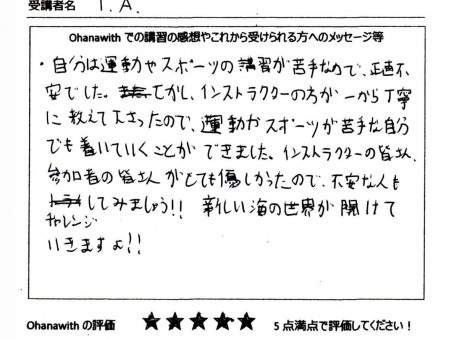 受講者名 T.A.
Ohanawith での講習の感想やこれから受けられる方へのメッセージ等
・自分は運動やスポーツの講習が苦手なので、正直不
安でした。しかし、インストラクターの方が一から丁寧
に教えて下さったので、運動がスポーツが苦手な自分
でも着いていくことができました。インストラクターの皆さん、
参加者の皆さんがとても優しかったので、不安な人も
チャレンジしてみましょう!! 新しい海の世界が開けて
いきますよ!!
Ohanawith の評価 ★★★★★ 5 点満点で評価してください!